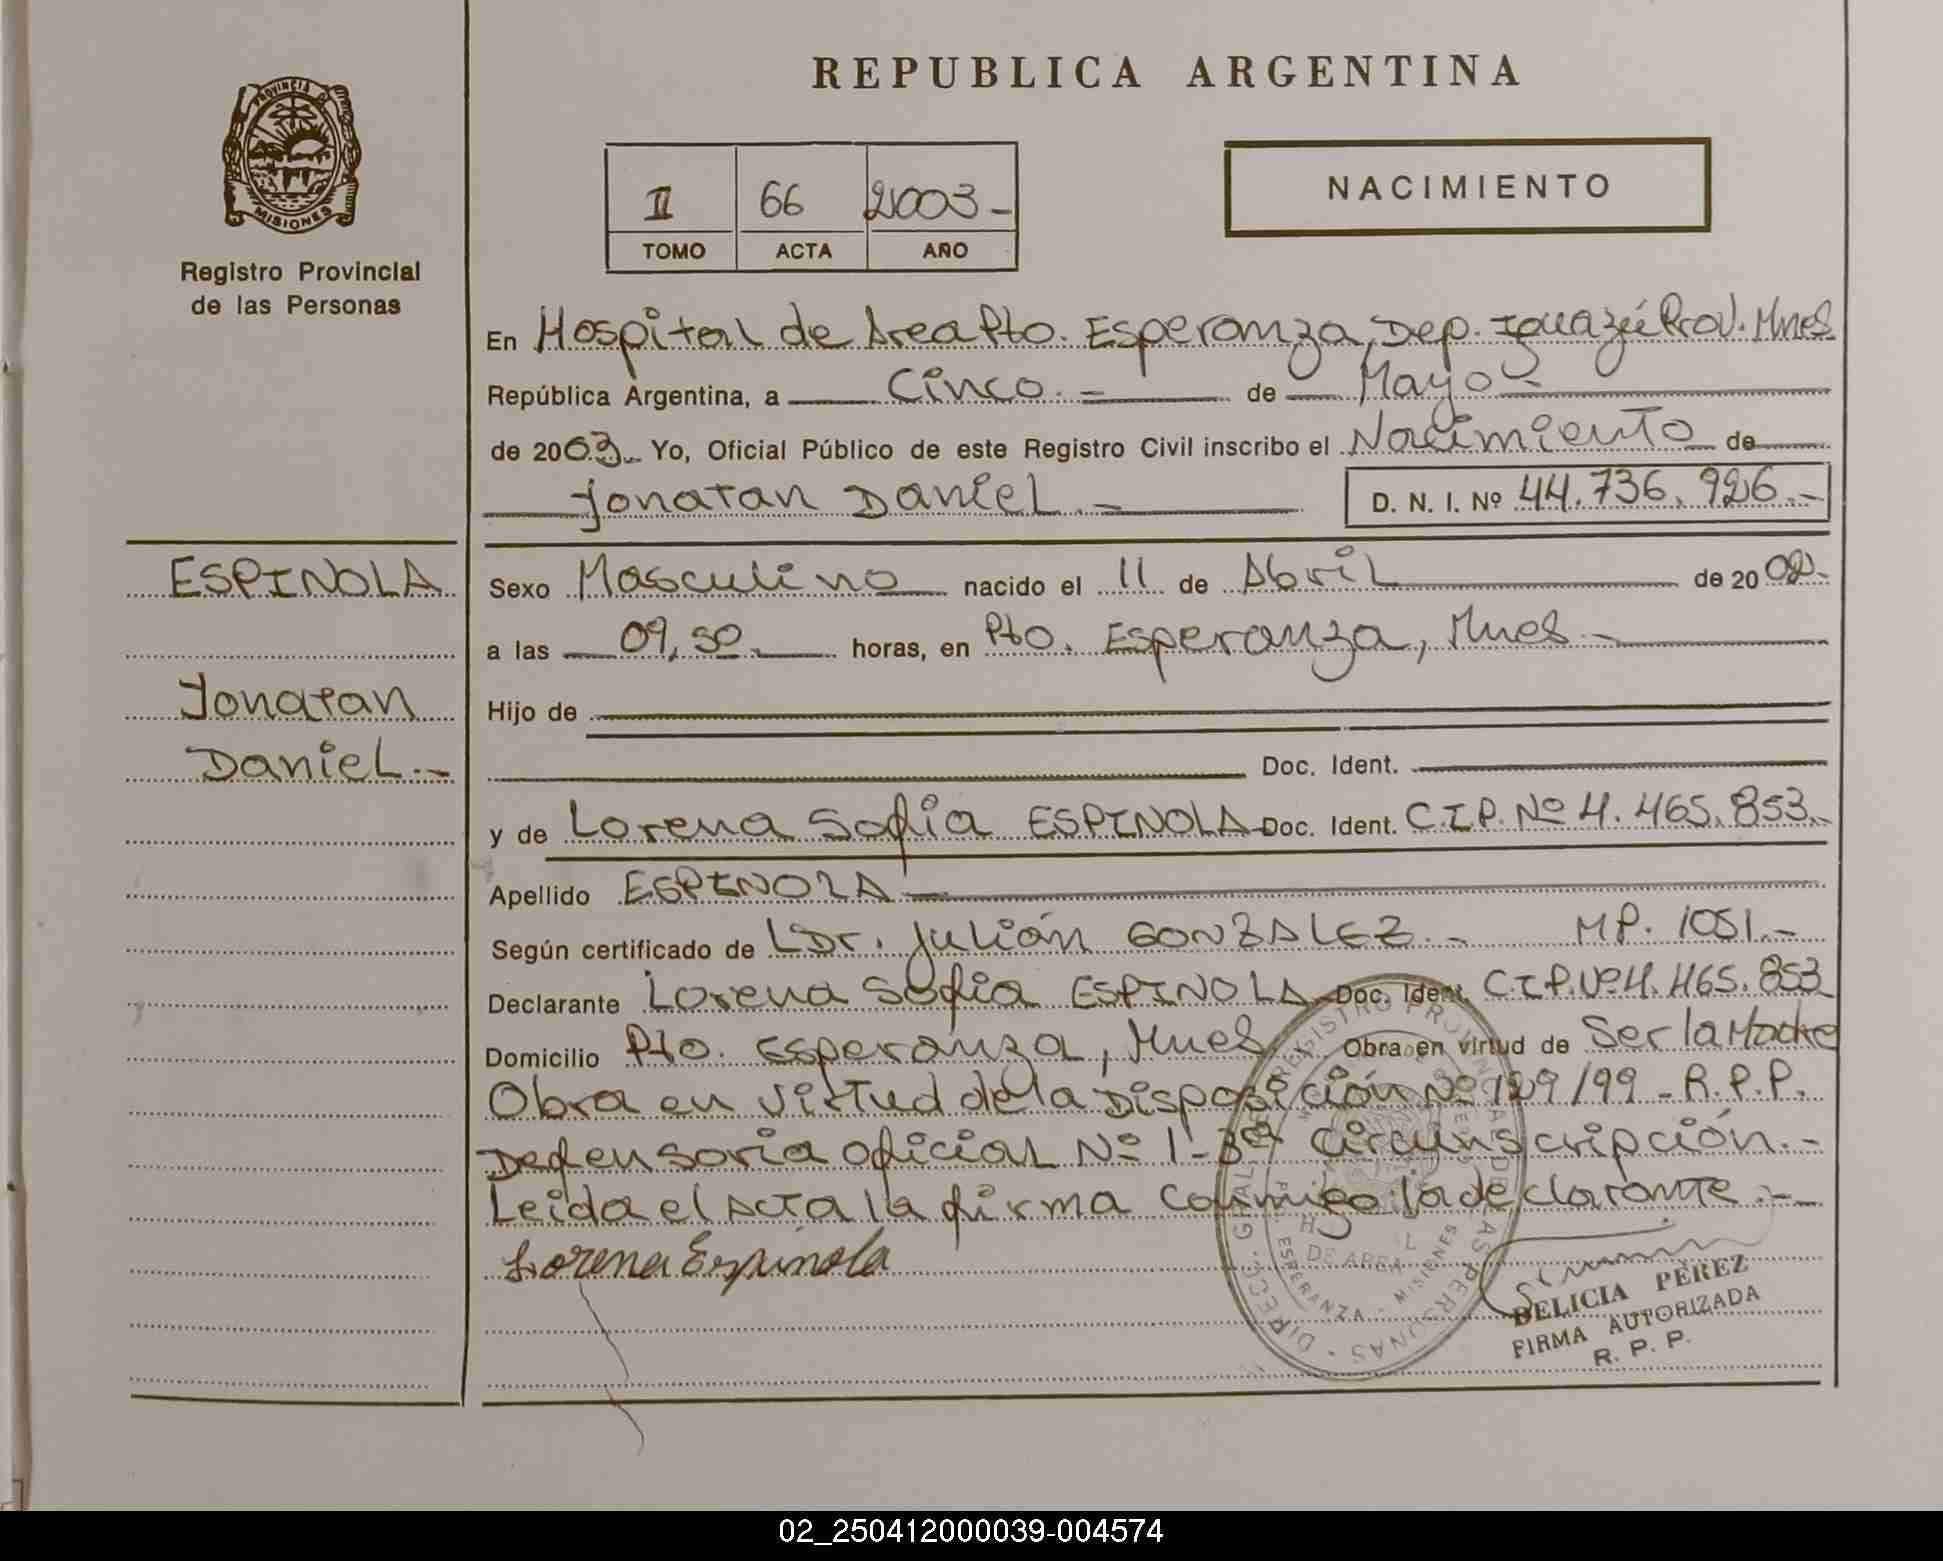 REPUBLICA ARGENTINA
PROVINCIA DE
MISIONES
Registro Provincial
de las Personas
II 66 2003-
TOMO ACTA AÑO
NACIMIENTO
En Hospital de Area Pto. Esperanza, Dep. Iguazú Prov. Mnes
República Argentina, a Cinco.- de Mayo-
de 2003.- Yo, Oficial Público de este Registro Civil inscribo el Nacimiento de
Jonatan Daniel.- D. N. I. Nº 44.736.926.-
ESPINOLA
Jonatan
Daniel.-
Sexo Masculino nacido el 11 de Abril de 2002-
a las 09,50 horas, en Pto. Esperanza, Mnes.-
Hijo de
Doc. Ident.
y de Lorena Sofia ESPINOLA Doc. Ident. C.I.P. Nº 4.465.853.-
Apellido ESPINOLA
Según certificado de Dr. Julián GONZALEZ.- MP. 1051.-
Declarante Lorena Sofia ESPINOLA Doc. Ident. C.I.P. Nº 4.465.853
Domicilio Pto. Esperanza, Mnes Obra en virtud de Ser la Madre
Obra en virtud de la Disposición Nº 129/99 - R.P.P.
Defensoria oficial Nº 1-3ª Circunscripción.-
Leida el Acta la firma conmigo la declarante.-
Lorena Espinola
DELICIA PÉREZ
FIRMA AUTORIZADA
R. P. P.
DE AREA
ESPERANZA - MISIONES
02_250412000039-004574